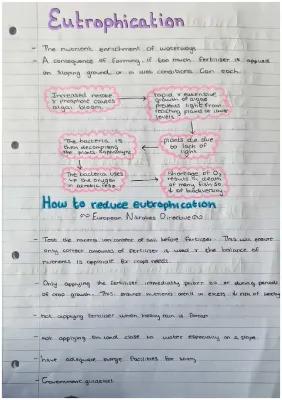 Eutrophication
- The nutrient enrichment of waterways
- A consequence of farming, if too much fertiliser is applied
on sloping ground or in wet conditions can reach
Increased nitrate
& phosphate causes
algal bloom
rapid & extensive
growth of algae
prevents light from
reaching plants at lower
levels
The bacteria is
then decomposing
the plants
plants die due
to lack of
light
The bacteria uses
up the oxygen
in
shortage of O₂
results in death
of many fish so
↓ of biodiversity
How to reduce eutrophication
European Nitrates Directive
- Test the nutrient content of soil before fertiliser. This will ensure
only correct amounts of fertiliser is used & the balance of
nutrients is appropriate for crops needs
- Only applying the fertiliser immediately prior to or during periods
of crop growth. This ensures nutrients aren't in excess & risk of
- not applying fertiliser when heavy rain is forecast
- not applying on land close to water especially on a slope
- have adequate storage facilities for slurry
- Government guidelines